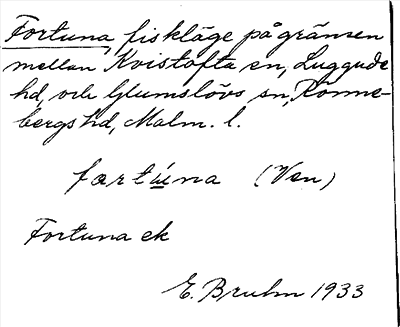 Fortuna, fiskläge på gränsen
mellan Kvistofta sn, Luggude
hd, och Glumslövs sn, Rönne-
bergs hd, Malm. l.
fortúna (Ven)
Fortuna ek
E. Bruhn 1933